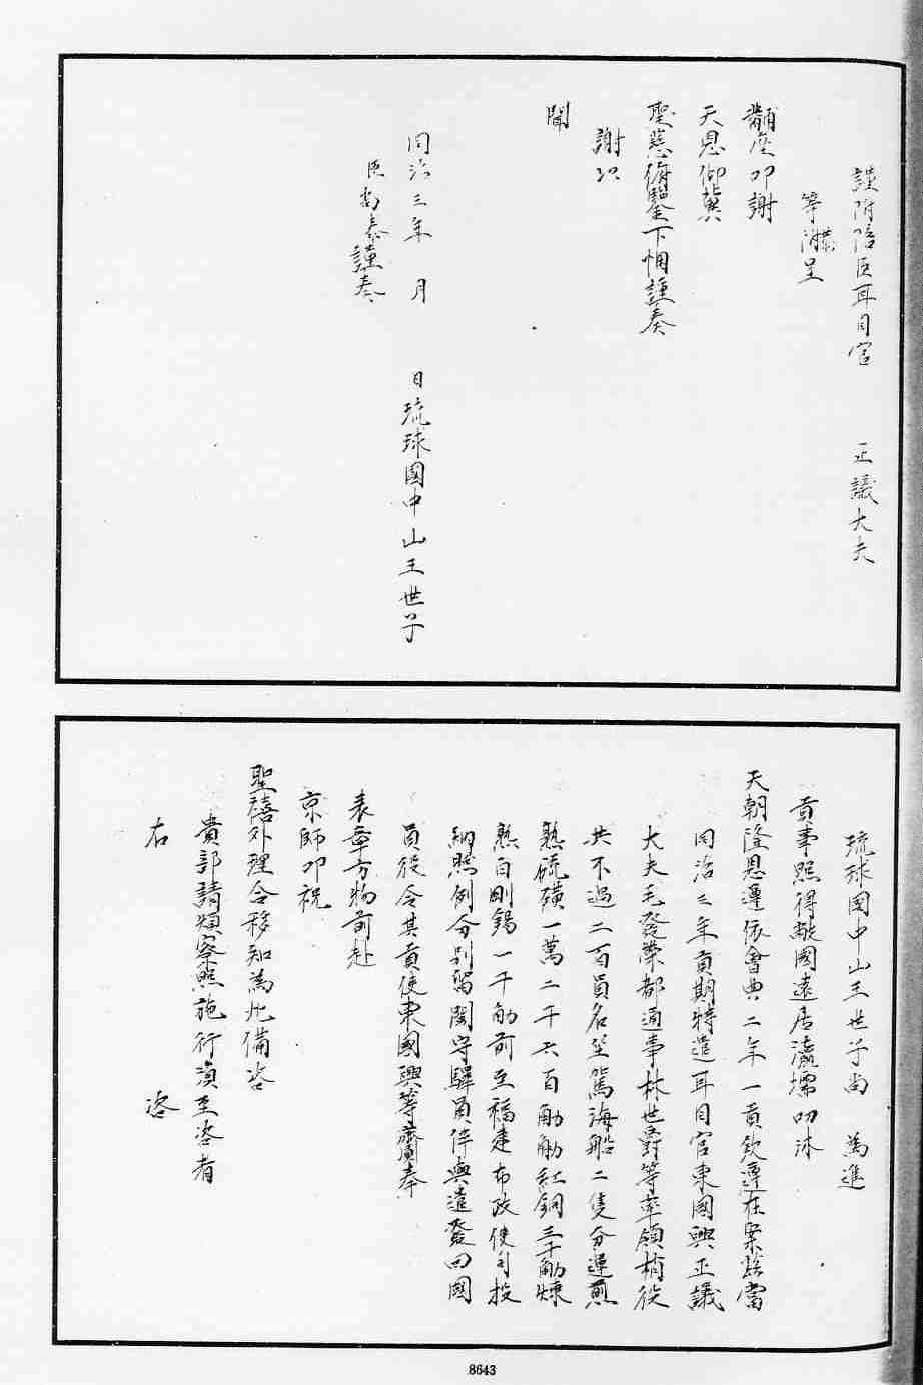 謹附陪臣耳目官　正議大夫
等齎呈
黼座叩謝
天恩仰冀
聖慈俯鑒下悃謹奏
謝以
聞
同治三年　月　日琉球國中山王世子
臣尚泰謹奏
琉球國中山王世子尚　為進
貢事照得敝國遠居瀛壖叨沐
天朝隆恩遵依會典二年一貢欽遵在案茲當
同治三年貢期特遣耳目官東國興正議
大夫毛發榮都通事林世爵等率領梢役
共不過二百員名坐駕海船二隻分運煎
熟硫磺一萬二千六百觔紅銅三千觔煉
熟白剛錫一千觔前至福建布政使司投
納照例分別留閩守驛員伴與遣發回國
員役令其貢使東國興等齎奉
表章方物前赴
京師叩祝
聖禧外理合移知為此備咨
貴部請煩察照施行須至咨者
右　咨
8643